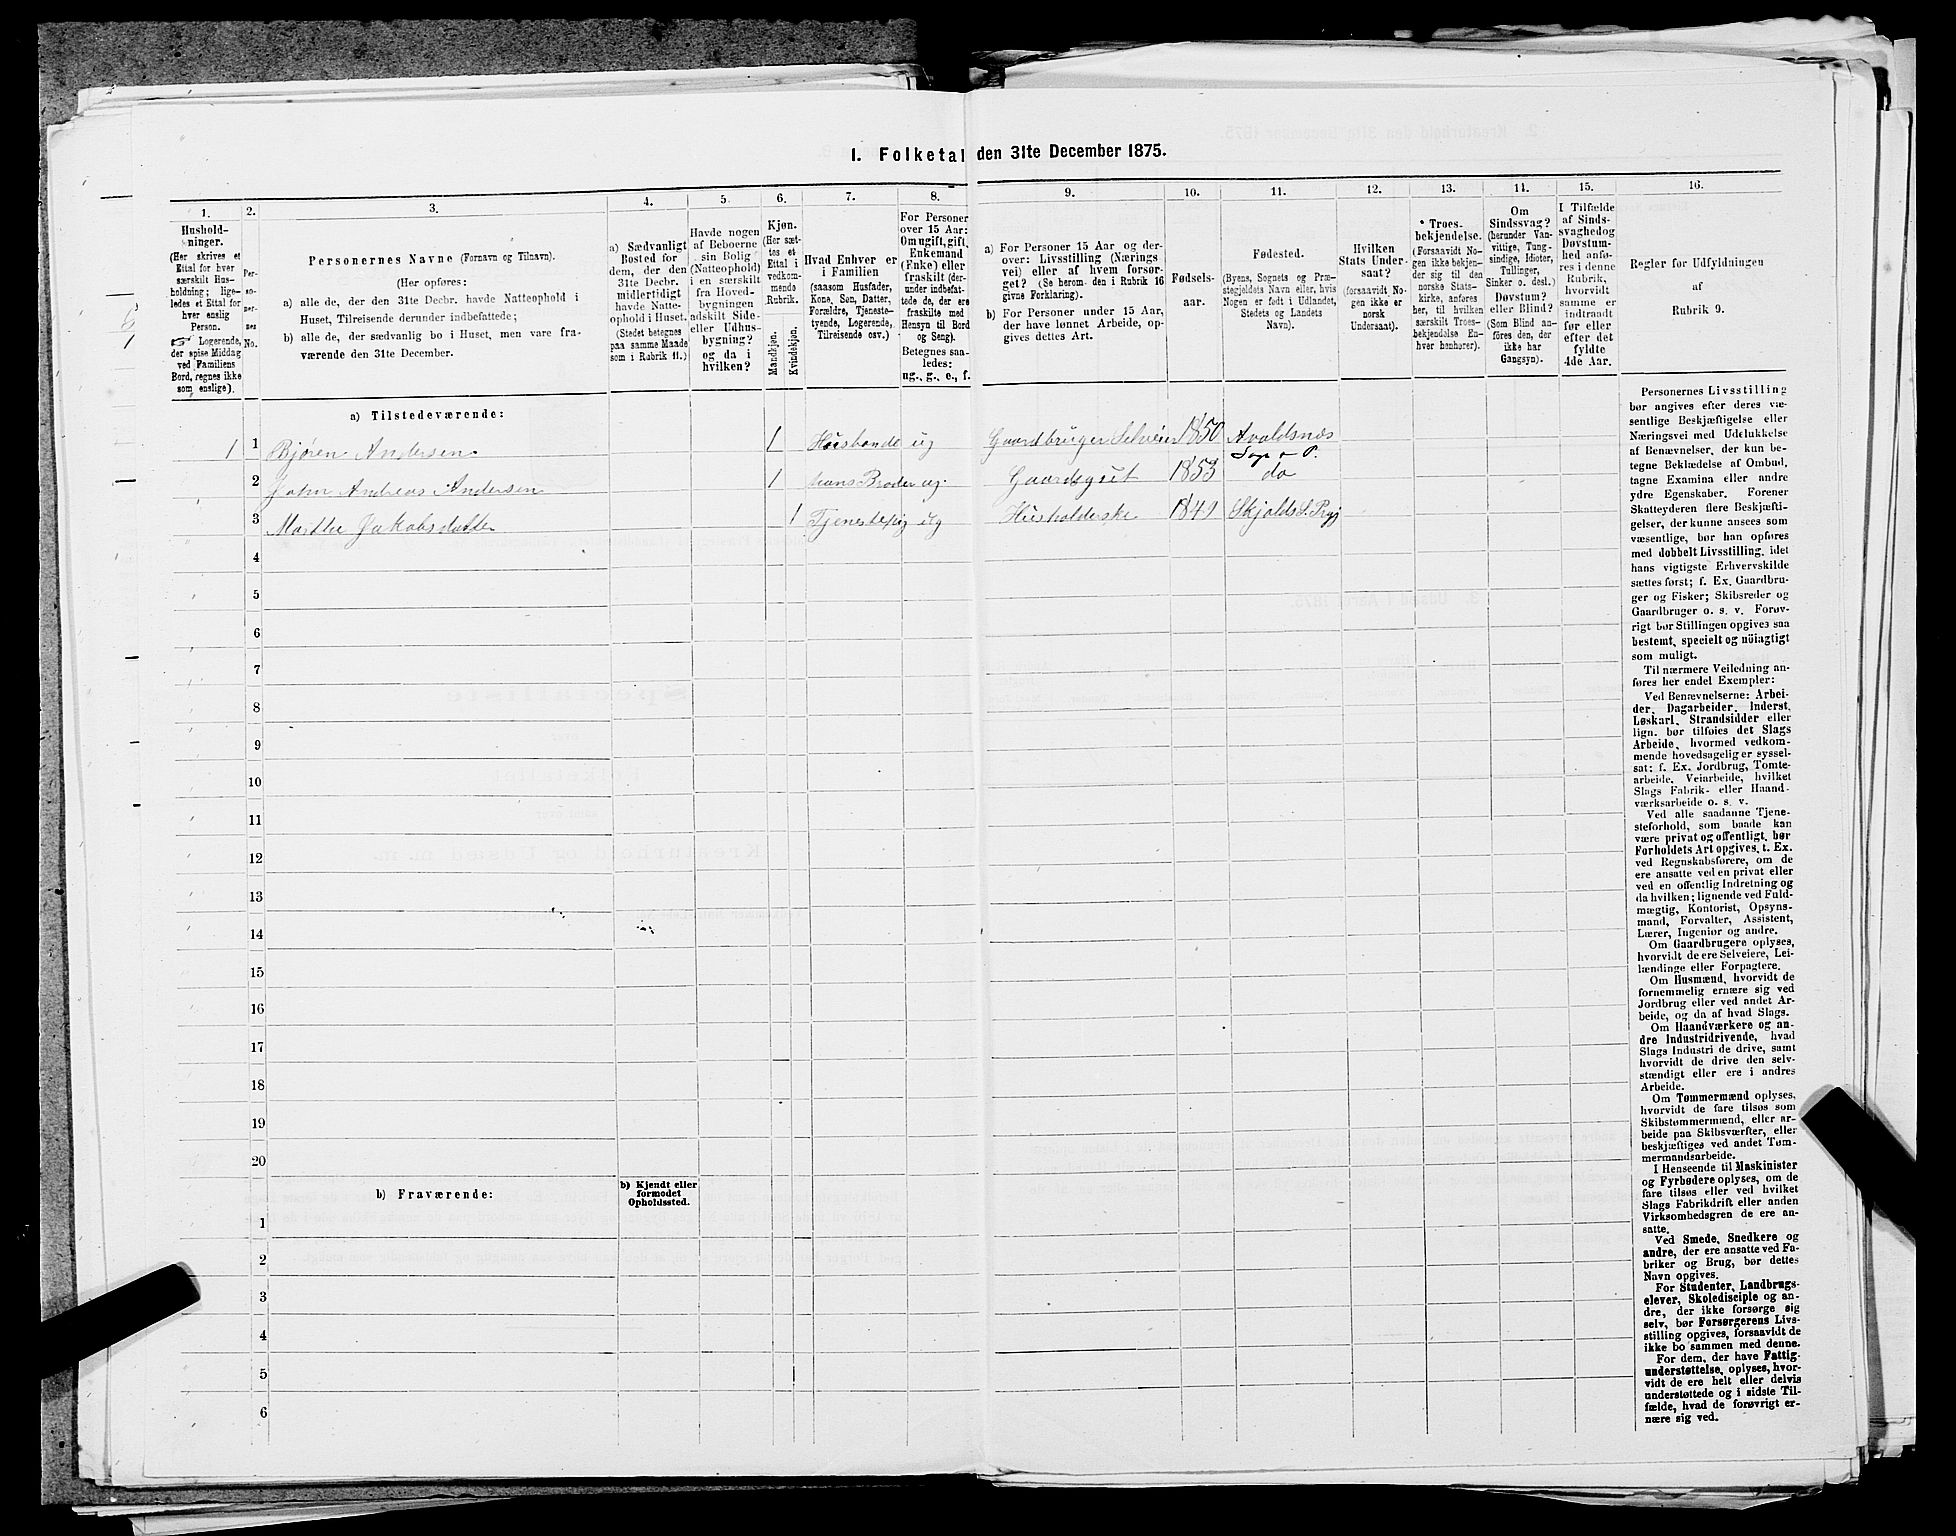 I. Folketal den 31te December 1875.
1. 2. 3. 4. 5. 6. 7. 8. 9. 10. 11. 12. 13. 14. 15. 16.
Hushold-
ninger.
(Her skrives et
Ettal for hver
særskilt Hus-
holdning; lige-
ledes et Ettal for
hver enslig
Person.
☞ Logerende,
der spise Middag
ved Familiens
Bord, regnes ikke
som enslige).
Per-
so-
ner-
nes
No.
Personernes Navne (Fornavn og Tilnavn).
(Her opføres:
a) alle de, der den 31te Decbr. havde Natteophold i
Huset, Tilreisende derunder indbefattede;
b) alle de, der sædvanlig bo i Huset, men vare fra-
værende den 31te December.
a) Sædvanligt
Bosted for
dem, der den
31te Decbr.
midlertidigt
havde Natte-
ophold i Huset.
(Stedet betegnes
paa samme Maade
som i Rubrik 11.)
Havde nogen
af Beboerne
sin Bolig
(Natteophold)
i en særskilt
fra Hoved-
bygningen
adskilt Side-
eller Udhus-
bygning?
og da i
hvilken?
Kjøn.
(Her sæt-
tes et
Ettal i
vedkom-
mende
Rubrik.
Mandkjøn.
Kvindekjøn.
Hvad Enhver er
i Familien
(saasom Husfader,
Kone, Søn, Datter,
Forældre, Tjeneste-
tyende, Logerende,
Tilreisende osv.)
For Personer
over 15 Aar:
Om ugift, gift,
Enkemand
(Enke) eller
fraskilt (der-
under indbefat-
tede de, der ere
fraskilte med
Hensyn til Bord
og Seng).
Betegnes saa-
ledes:
ug., g., e., f.
a) For Personer 15 Aar og der-
over: Livsstilling (Nærings
vei) eller af hvem forsør-
get? (Se herom den i Rubrik 16
givne Forklaring).
b) For Personer under 15 Aar,
der have lønnet Arbeide, op-
gives dettes Art.
Fødsels-
aar.
Fødested.
(Byens, Sognets og Præ-
stegjeldets Navn eller, hvis
Nogen er født i Udlandet,
Stedets og Landets
Navn).
Hvilken
Stats Under-
saat?
(forsaavidt No-
gen ikke er
norsk
Undersaat).
Troes-
bekjendelse.
(Forsaavidt No-
gen ikke bekjen-
der sig til den
norske Stats-
kirke, anføres
her, til hvilken
særskilt Troes-
bekjendelse En-
hver henhører).
Om
Sindssvag?
(herunder Van-
vittige, Tung-
sindige, Idioter,
Tullinger,
Sinker o. desl.)
Døvstum?
eller Blind?
(Som Blind an-
føres den, der
ikke har
Gangsyn).
I Tilfælde
af Sinds-
svaghed og
Døvstum-
hed anfø-
res i denne
Rubrik,
hvorvidt
samme er
indtraadt
før eller
efter det
fyldte
4de Aar.
Regler for Udfyldningen
af
Rubrik 9.
a) Tilstedeværende:
1 1 Bjøren Andersen 1 Husbonde ug Gaardbruger Selveier 1850 Avaldsnæs
Sogn o P.
2 John Andreas Andersen 1 hans Broder ug. Gaardsgut 1853 do
3 Marthe Jakobsdatter 1 Tjenestepig ug Husholderske 1849 Skjolds S. Prgj
4
5
6
7
8
9
10
11
12
13
14
15
16
17
18
19
20
b) Fraværende:
b) Kjendt eller
formodet
Opholdssted.
1
2
3
4
5
6
Personernes Livsstilling
bør angives efter deres væ-
sentlige Beskjæftigelse eller
Næringsvei med Udelukkelse
af Benævnelser, der kun be-
tegne Beklædelse af Ombud,
tagne Examina eller andre
ydre Egenskaber. Forener
Skatteyderen flere Beskjæfti-
gelser, der kunne ansees som
væsentlige, bør han opføres
med dobbelt Livsstilling, idet
hans vigtigste Erhvervskilde
sættes først; f. Ex. Gaardbru-
ger og Fisker; Skibsreder og
Gaardbruger o. s. v. Forøv-
rigt bør Stillingen opgives saa
bestemt, specielt og nöiagtigt
som muligt.
Til nærmere Veiledning an-
føres her endel Exempler:
Ved Benævnelserne: Arbei-
der, Dagarbeider, Inderst,
Løskarl, Strandsidder eller
lign. bør tilføies det Slags
Arbeide, hvormed vedkom-
mende hovedsagelig er syssel-
sat; f. Ex. Jordbrug, Tomte-
arbeide, Veiarbeide, hvilket
Slags Fabrik- eller Haand-
værksarbeide o. s. v.
Ved alle saadanne Tjene-
steforhold, som baade kan
være privat og offentligt, bør
Forholdets Art opgives, t. Ex.
ved Regnskabsførere, om de
ere ansatte ved en privat eller
ved en offentlig Indretning og
da hvilken; lignende ved Fuld-
mægtig, Kontorist, Opsyns-
mand, Forvalter, Assistent,
Lærer, Ingeniør og andre.
Om Gaardbrugere oplyses,
hvorvidt de ere Selveiere, Lei-
lændinge eller Forpagtere.
Om Husmænd, hvorvidt de
fornemmelig ernære sig ved
Jordbrug eller ved andet Ar-
beide, og da af hvad Slags.
Om Haandværkere og an-
dre Industridrivende, hvad
Slags Industri de drive, samt
hvorvidt de drive den selv-
stændigt eller ere i andres
Arbeide.
Om Tømmermænd oplyses,
hvorvidt de fare tilsøs som
Skibstømmermænd, eller ar-
beide paa Skibsværfter, eller
beskjæftiges ved andet Tøm-
mermandsarbeide.
I Henseende til Maskinister
og Fyrbødere oplyses, om de
fare tilsøs eller ved hvilket
Slags Fabrikdrift eller anden
Virksomhedsgren de ere an-
satte.
Ved Smede, Snedkere og
andre, der ere ansatte ved Fa-
briker og Brug, bør dettes
Navn opgives.
For Studenter, Landbrugs-
elever, Skoledisciple og an-
dre, der ikke forsørge sig
selv, bør Forsørgerens Livs-
stilling opgives, forsaavidt de
ikke bo sammen med denne.
For dem, der have Fattig-
understøttelse, oplyses, hvor-
vidt de ere helt eller delvis
understøttede og i sidste Til-
fælde, hvad de forøvrigt er-
nære sig ved.